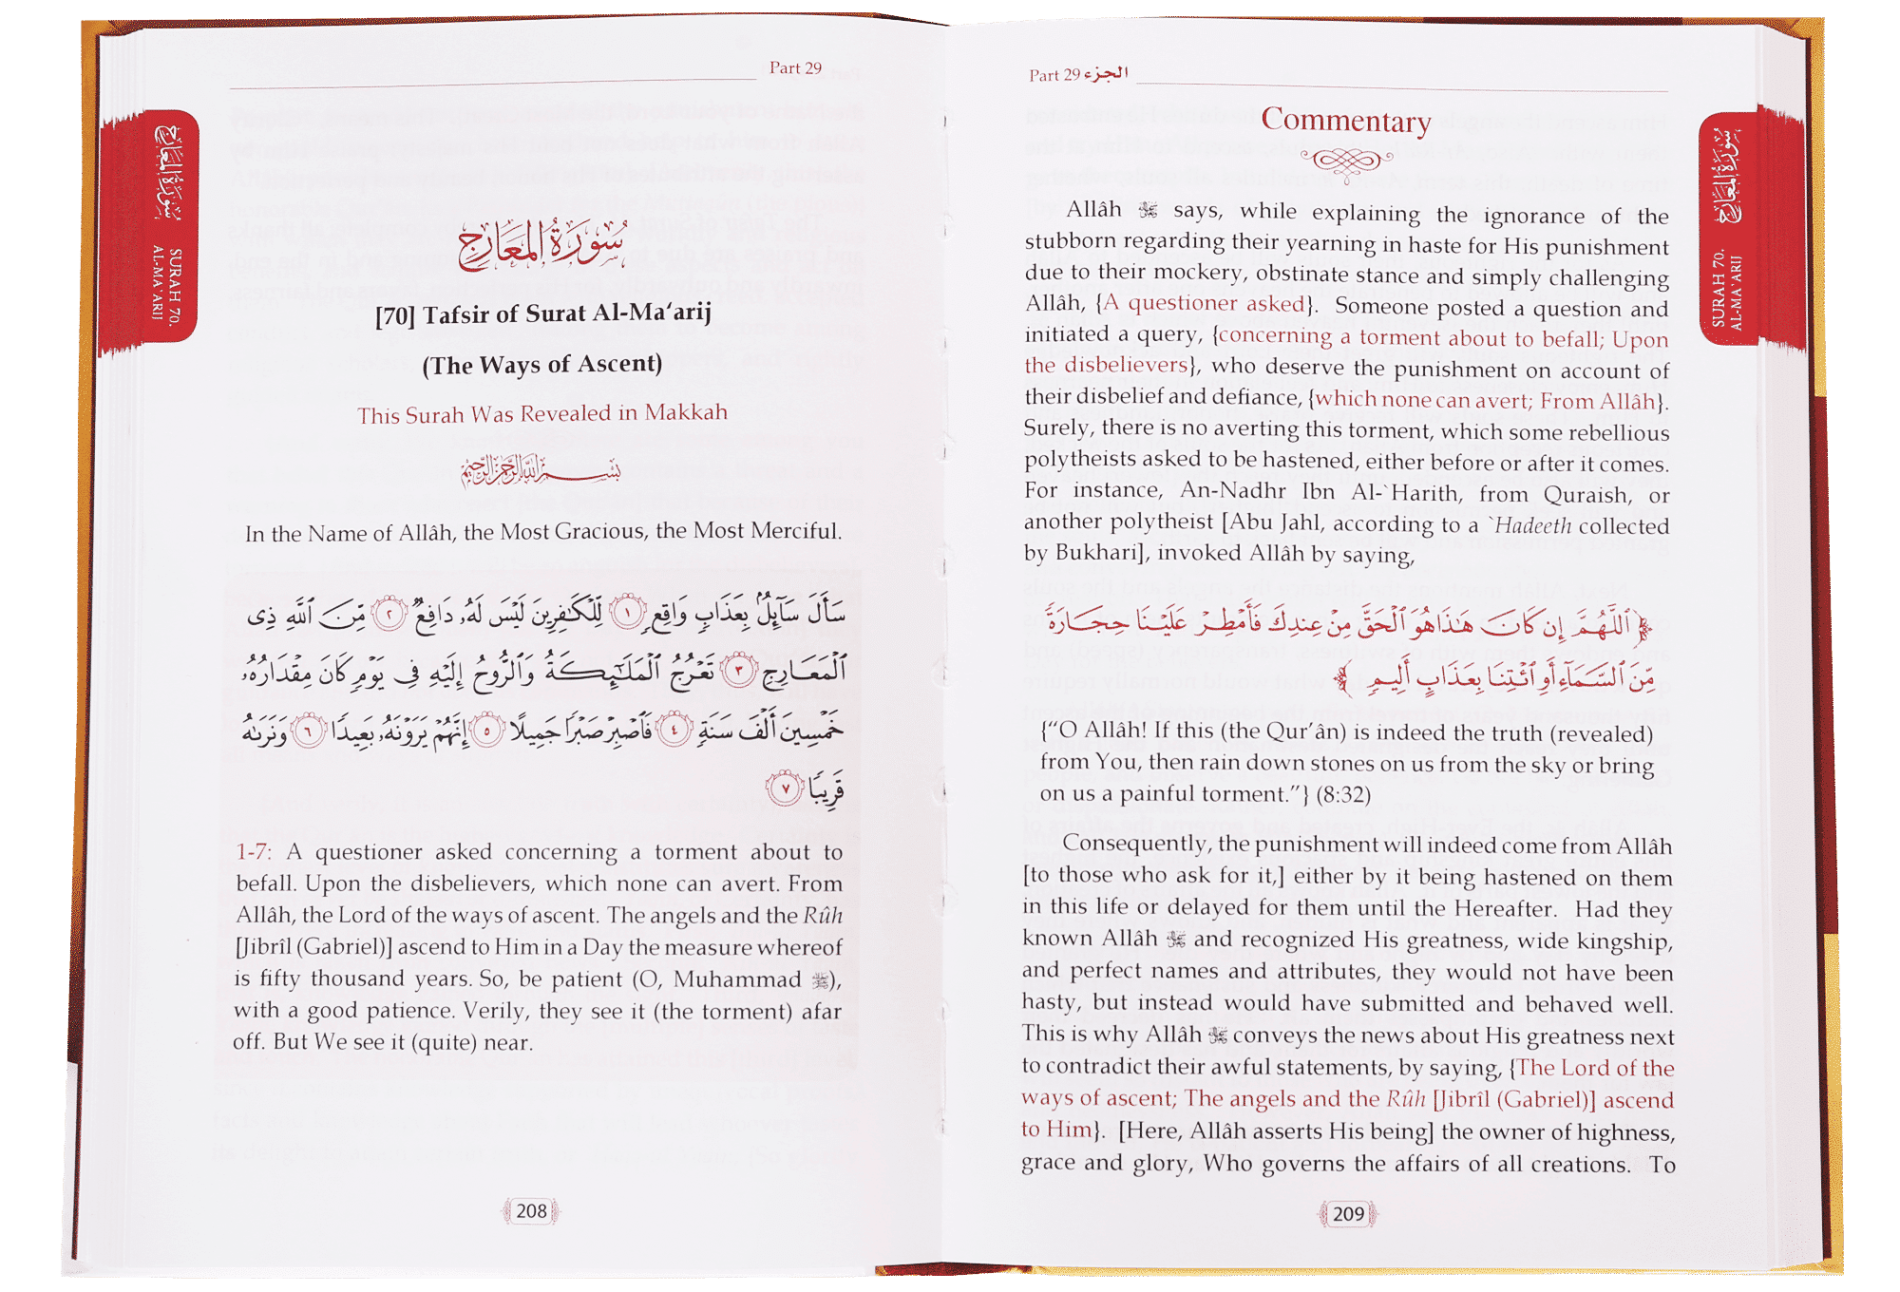 Part 29
سورة المعارج
SURAH 70.
AL-MA'ARIJ
سُورَةُ المَعَارِجِ
[70] Tafsir of Surat Al-Ma‘arij
(The Ways of Ascent)
This Surah Was Revealed in Makkah
بِسْمِ اللَّهِ الرَّحْمَٰنِ الرَّحِيمِ
In the Name of Allâh, the Most Gracious, the Most Merciful.
سَأَلَ سَآئِلٌۢ بِعَذَابٖ وَاقِعٖ ١ لِّلۡكَٰفِرِينَ لَيۡسَ لَهُۥ دَافِعٞ ٢ مِّنَ ٱللَّهِ ذِي
ٱلۡمَعَارِجِ ٣ تَعۡرُجُ ٱلۡمَلَٰٓئِكَةُ وَٱلرُّوحُ إِلَيۡهِ فِي يَوۡمٖ كَانَ مِقۡدَارُهُۥ
خَمۡسِينَ أَلۡفَ سَنَةٖ ٤ فَٱصۡبِرۡ صَبۡرٗا جَمِيلًا ٥ إِنَّهُمۡ يَرَوۡنَهُۥ بَعِيدٗا ٦ وَنَرَىٰهُ
قَرِيبٗا ٧
1-7: A questioner asked concerning a torment about to
befall. Upon the disbelievers, which none can avert. From
Allâh, the Lord of the ways of ascent. The angels and the Rûh
[Jibrîl (Gabriel)] ascend to Him in a Day the measure whereof
is fifty thousand years. So, be patient (O, Muhammad ﷺ),
with a good patience. Verily, they see it (the torment) afar
off. But We see it (quite) near.
208
Part 29 الجزء
سورة المعارج
SURAH 70.
AL-MA'ARIJ
Commentary
Allâh ﷻ says, while explaining the ignorance of the
stubborn regarding their yearning in haste for His punishment
due to their mockery, obstinate stance and simply challenging
Allâh, {A questioner asked}. Someone posted a question and
initiated a query, {concerning a torment about to befall; Upon
the disbelievers}, who deserve the punishment on account of
their disbelief and defiance, {which none can avert; From Allâh}.
Surely, there is no averting this torment, which some rebellious
polytheists asked to be hastened, either before or after it comes.
For instance, An-Nadhr Ibn Al-`Harith, from Quraish, or
another polytheist [Abu Jahl, according to a `Hadeeth collected
by Bukhari], invoked Allâh by saying,
﴿ٱللَّهُمَّ إِن كَانَ هَٰذَا هُوَ ٱلۡحَقَّ مِنۡ عِندِكَ فَأَمۡطِرۡ عَلَيۡنَا حِجَارَةٗ
مِّنَ ٱلسَّمَآءِ أَوِ ٱئۡتِنَا بِعَذَابٍ أَلِيمٖ﴾
{“O Allâh! If this (the Qur’ân) is indeed the truth (revealed)
from You, then rain down stones on us from the sky or bring
on us a painful torment.”} (8:32)
Consequently, the punishment will indeed come from Allâh
[to those who ask for it,] either by it being hastened on them
in this life or delayed for them until the Hereafter. Had they
known Allâh ﷻ and recognized His greatness, wide kingship,
and perfect names and attributes, they would not have been
hasty, but instead would have submitted and behaved well.
This is why Allâh ﷻ conveys the news about His greatness next
to contradict their awful statements, by saying, {The Lord of the
ways of ascent; The angels and the Rûh [Jibrîl (Gabriel)] ascend
to Him}. [Here, Allâh asserts His being] the owner of highness,
grace and glory, Who governs the affairs of all creations. To
209